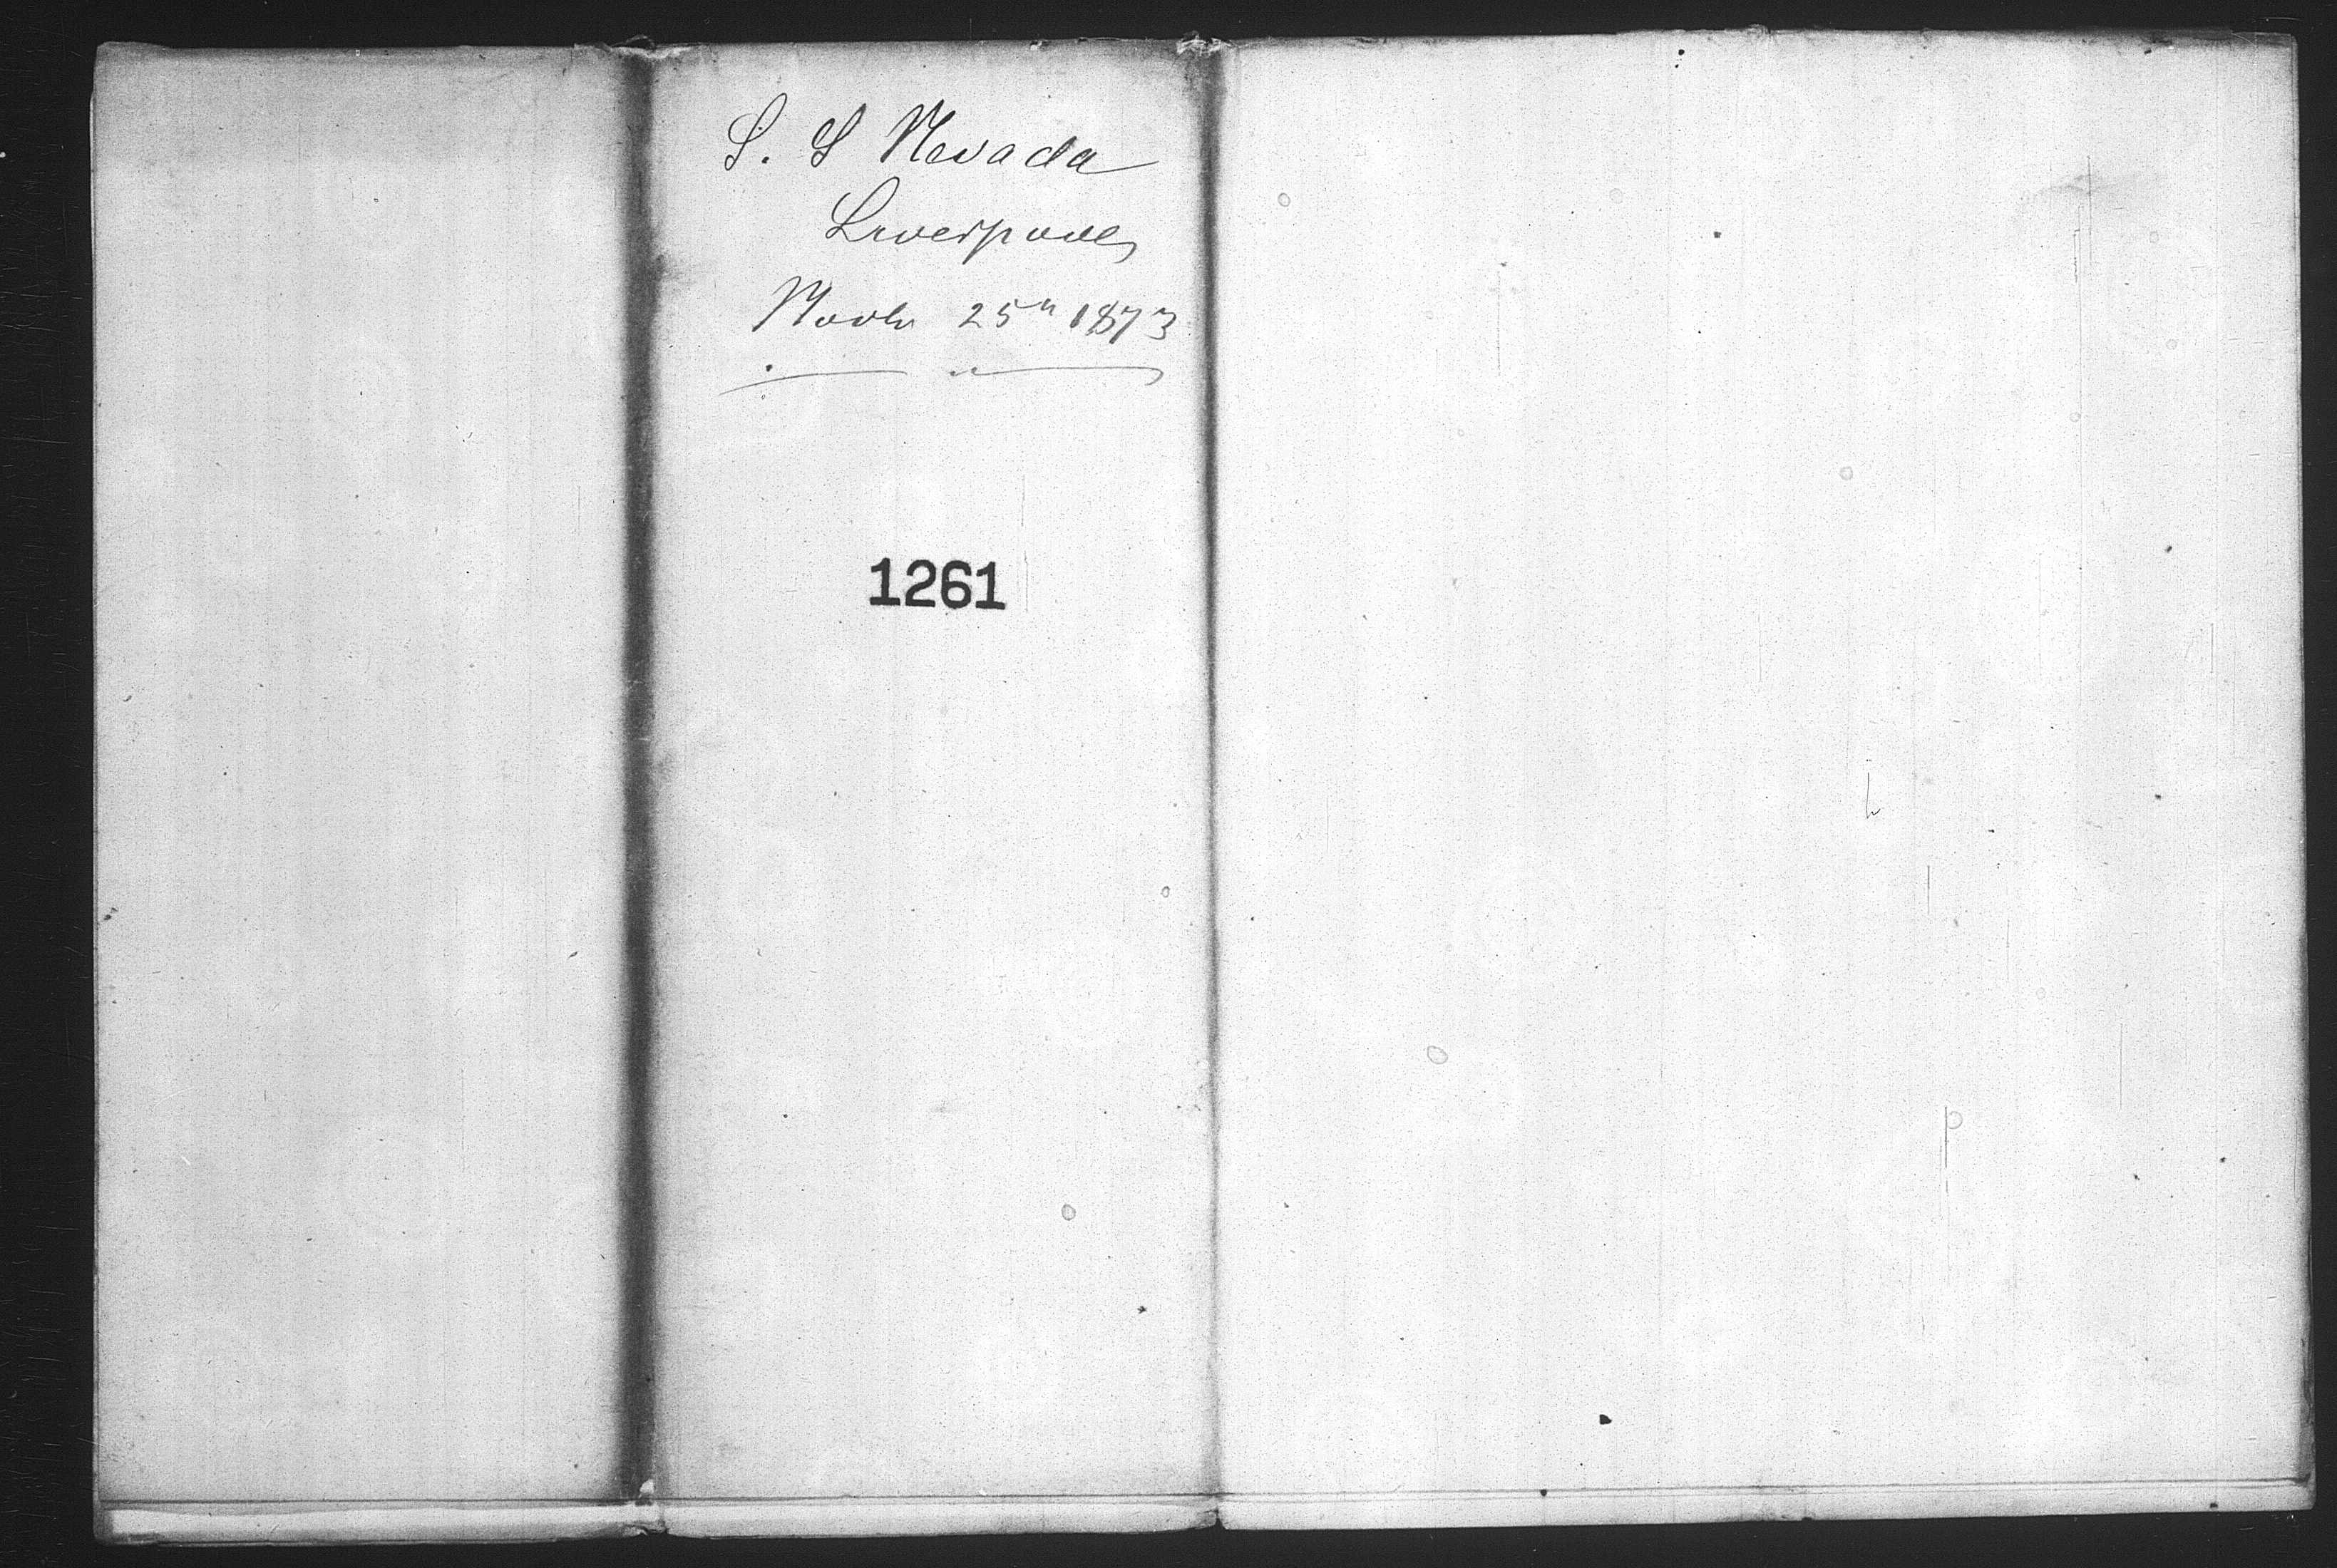 S. S Nevada
Liverpool
Novbr 25th 1873
1261